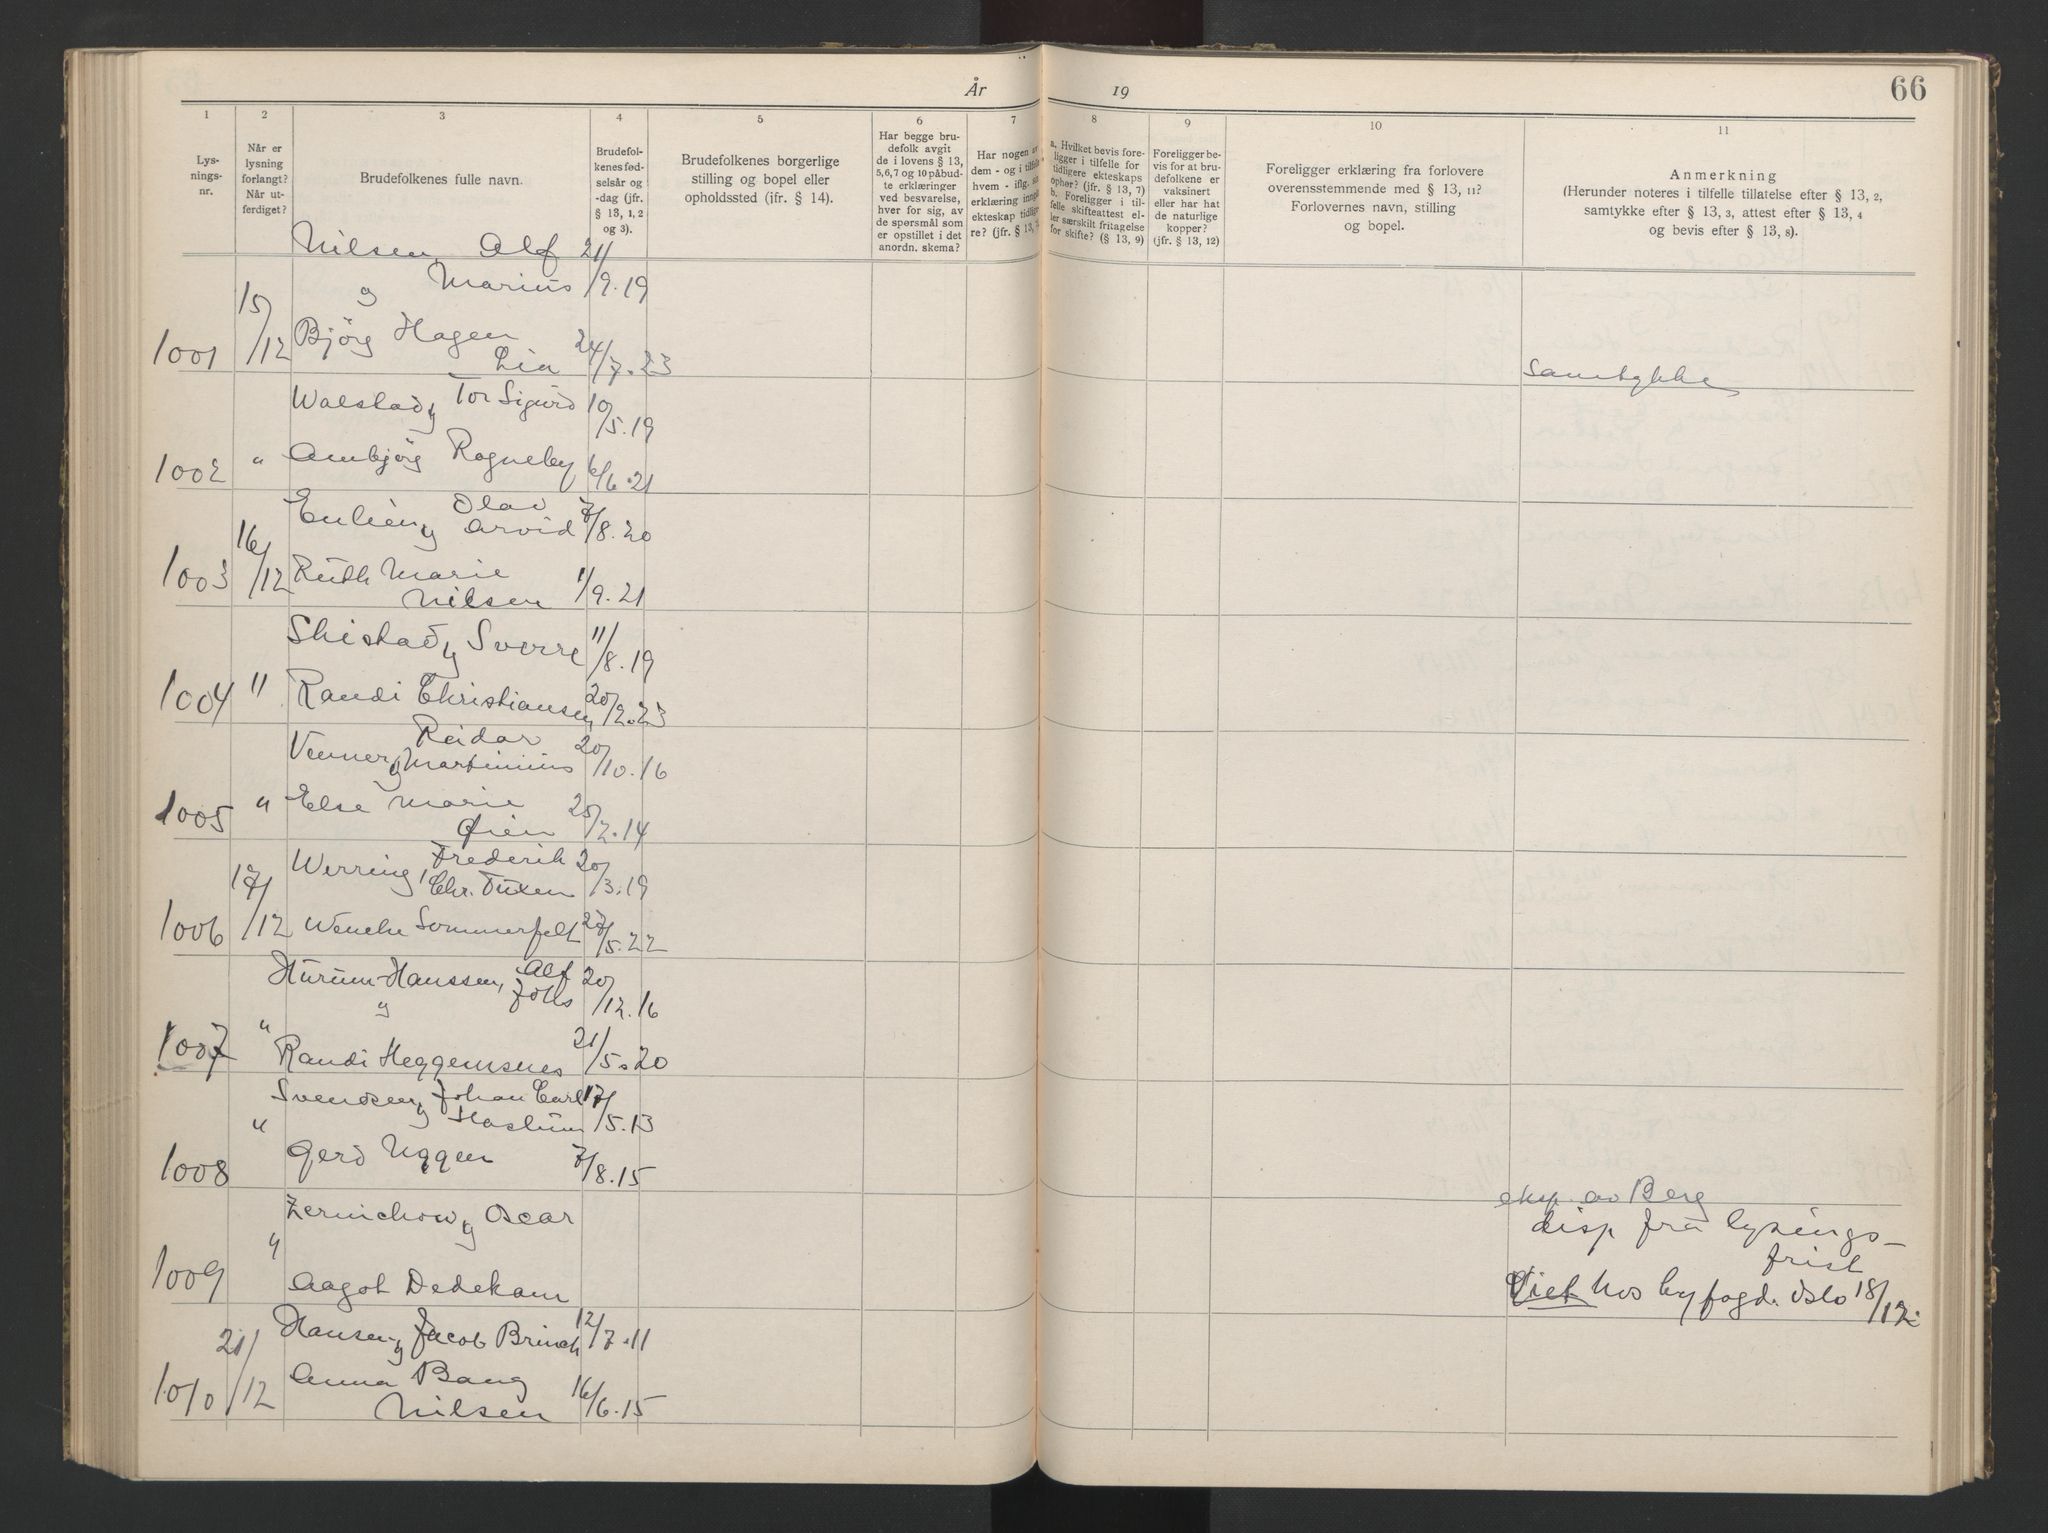 År 19
66
1 2 3 4 5 6 7 8 9 10 11
Lys-
nings-
nr.
Når er
lysning
forlangt?
Når ut-
ferdiget?
Brudefolkenes fulle navn.
Brudefol-
kenes fød-
selsår og
-dag (jfr.
§ 13, 1, 2
og 3).
Brudefolkenes borgerlige
stilling og bopel eller
opholdssted (jfr. § 14).
Har begge bru-
defolk avgit
de i lovens § 13,
5,6,7 og 10 påbud-
te erklæringer
ved besvarelse,
hver for sig, av
de spørsmål som
er opstillet i det
anordn. skema?
Har nogen av
dem - og i tilfelle
hvem - iflg. sin
erklæring inngått
ekteskap tidlige-
re? (jfr. § 13,
a. Hvilket bevis fore-
ligger i tilfelle for
tidligere ekteskaps
ophør? (jfr. § 13, 7)
b. Foreligger i til-
felle skifteattest el-
ler særskilt fritagelse
for skifte? (§ 13, 9)
Foreligger be-
vis for at bru-
defolkene er
vaksinert
eller har hat
de naturlige
kopper?
(jfr. § 13, 12)
Foreligger erklæring fra forlovere
overensstemmende med § 13, 11?
Forlovernes navn, stilling
og bopel.
Anmerkning
(Herunder noteres i tilfelle tillatelse efter § 13, 2,
samtykke efter § 13, 3, attest efter § 13, 4
og bevis efter § 13, 8).
Nilsen, Alf 21/
og Marius 9.19
1001 15/12 Bjørg Hagen 24/
Lia 7.23 Samtykke
Walstad og Tor Sigurd 10/5.19
1002 " Ambjørg Rogneby 6/6.21
Olav 7/
Eulien og Arvid 8.20
1003 16/12 Ruth Marie 1/
Nilsen 9.21
Skistad og Sverre 11/8.19
1004 " Randi Christiansen 20/2.23
Reidar 20/
Venner og Martinius 10.16
1005 " Else Marie 25/
Øien 2.14
Werring, Frederik 20/
Chr. Tuxen 3.19
1006 17/12 Wenche Sommerfelt 27/5.22
Hurum-Hanssen, Alf 20/
og Jølls 12.16
1007 " Randi Heggemsnes 21/5.20
Svendsen og Johan Carl 17/
Haslum 5.13
1008 " Gerd Uggen 7/8.15
eksp. av Berg
Zernichow og Oscar
disp fra lysings-
frist
1009 " Aagot Dedekam
Viet hos byfogd. Oslo 18/12.
Hansen og Jacob Brinch 12/7.11
1010 21/12 Anna Bang 16/
Nilsen 6.15